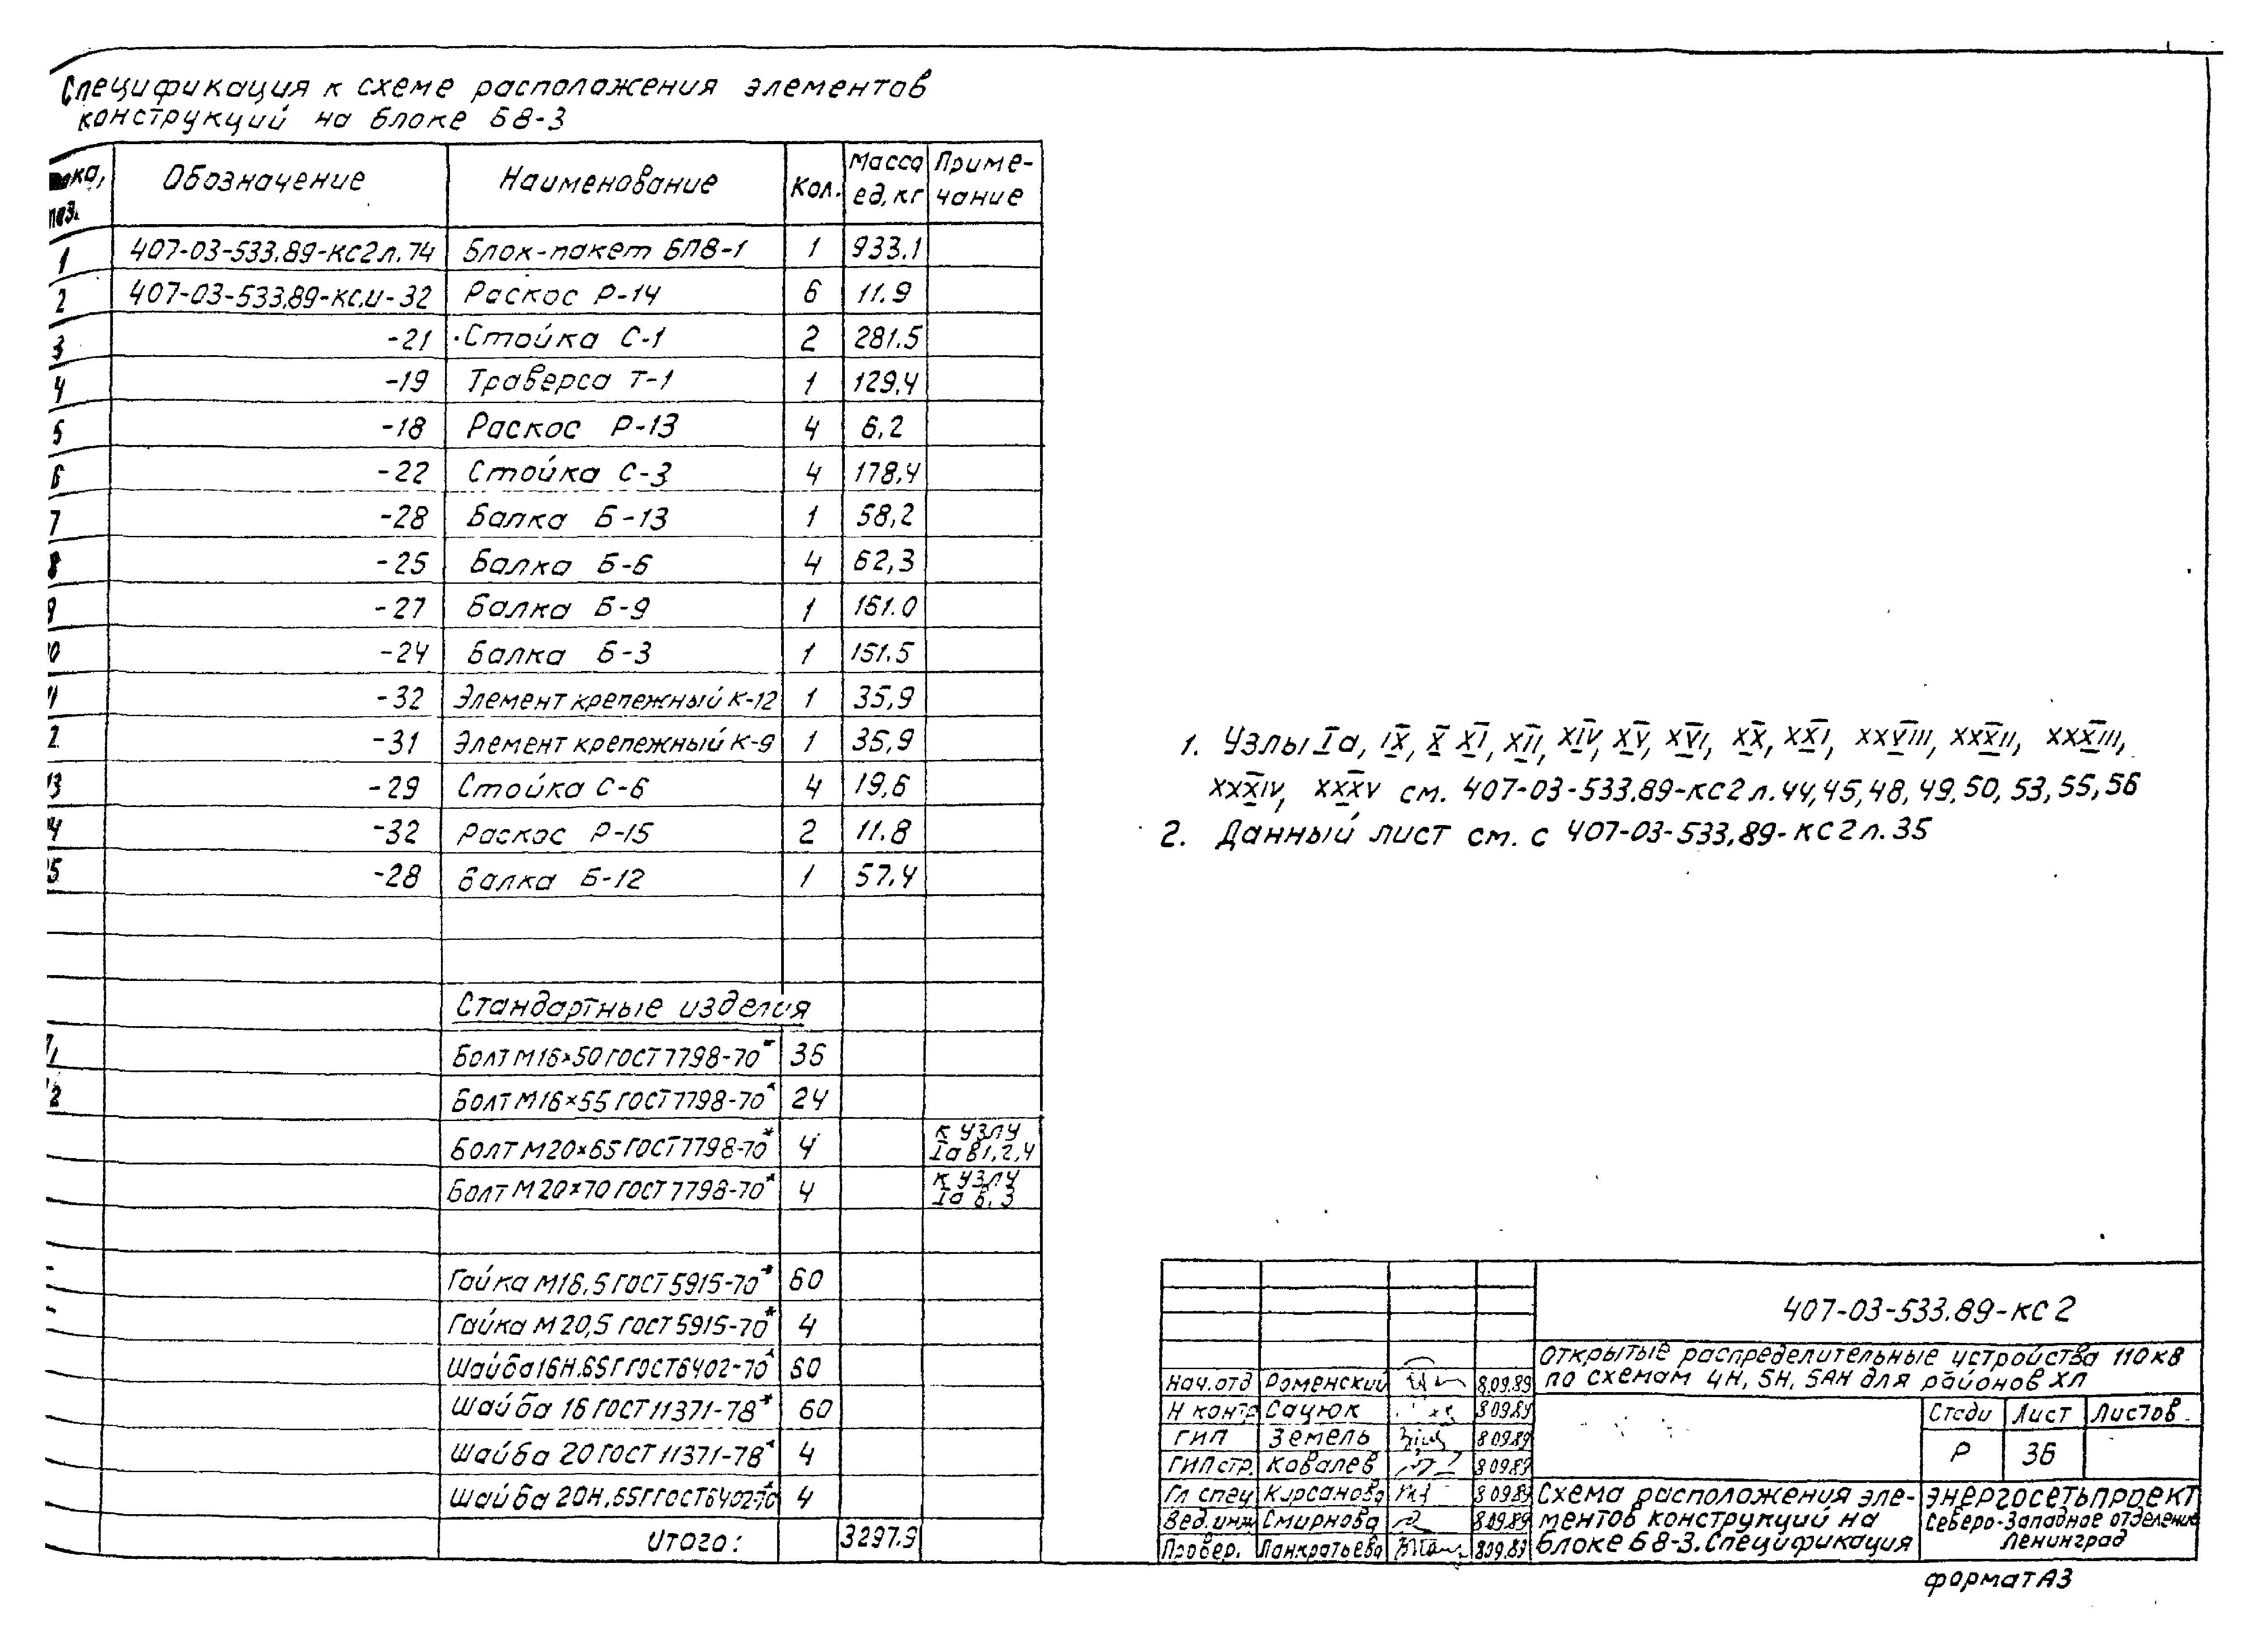 Спецификация к схеме расположения элементов
конструкций на блоке Б8-3
поз. Обозначение Наименование Кол. Масса ед, кг Приме-чание
1 407-03-533.89-КС2 л.74 Блок-пакет БП8-1 1 933.1
2 407-03-533.89-КС.И-32 Раскос Р-14 6 11.9
3 -21 Стойка С-1 2 281.5
4 -19 Траверса Т-1 1 129,4
5 -18 Раскос Р-13 4 6,2
6 -22 Стойка С-3 4 178,4
7 -28 Балка Б-13 1 58,2
8 -25 Балка Б-6 4 62,3
9 -27 Балка Б-9 1 161.0
10 -24 Балка Б-3 1 151.5
11 -32 Элемент крепежный К-12 1 35,9
12 -31 Элемент крепежный К-9 1 35,9
13 -29 Стойка С-6 4 19,6
14 -32 Раскос Р-15 2 11.8
15 -28 Балка Б-12 1 57.4
Стандартные изделия
Болт М16×50 ГОСТ 7798-70* 36
Болт М16×55 ГОСТ 7798-70* 24
Болт М20×65 ГОСТ 7798-70* 4 к узлу Iа в1,2,4
Болт М20×70 ГОСТ 7798-70* 4 к узлу Iа в.3
Гайка М16,5 ГОСТ 5915-70* 60
Гайка М20,5 ГОСТ 5915-70* 4
Шайба 16Н.65Г ГОСТ 6402-70* 60
Шайба 16 ГОСТ 11371-78* 60
Шайба 20 ГОСТ 11371-78* 4
Шайба 20Н.65Г ГОСТ 6402-70 4
Итого: 3297.9
1. Узлы Iа, IX, X XI, XII, XIV, XV, XVI, XX, XXI, XXVIII, XXXII, XXXIII,
XXXIV, XXXV см. 407-03-533.89-КС2 л.44,45,48,49,50,53,55,56
2. Данный лист см. с 407-03-533,89-КС2 л.35
407-03-533.89-КС2
Открытые распределительные устройства 110кВ
по схемам 4Н, 5Н, 5АН для районов ХЛ
Нач.отд Роменский 8.09.89
Н контр Сацюк 8 09.89
ГИП Земель 8 09.89
ГИП стр. Ковалев 8 09.89
Гл спец Кирсанова 8 09.89
Вед.инж Смирнова 8.09.89
Провер. Панкратьева 8.09.89
Стади Лист Листов
Р 36
Схема расположения эле-
ментов конструкций на
блоке Б8-3. Спецификация
Энергосетьпроект
Северо-Западное отделение
Ленинград
Формат А3